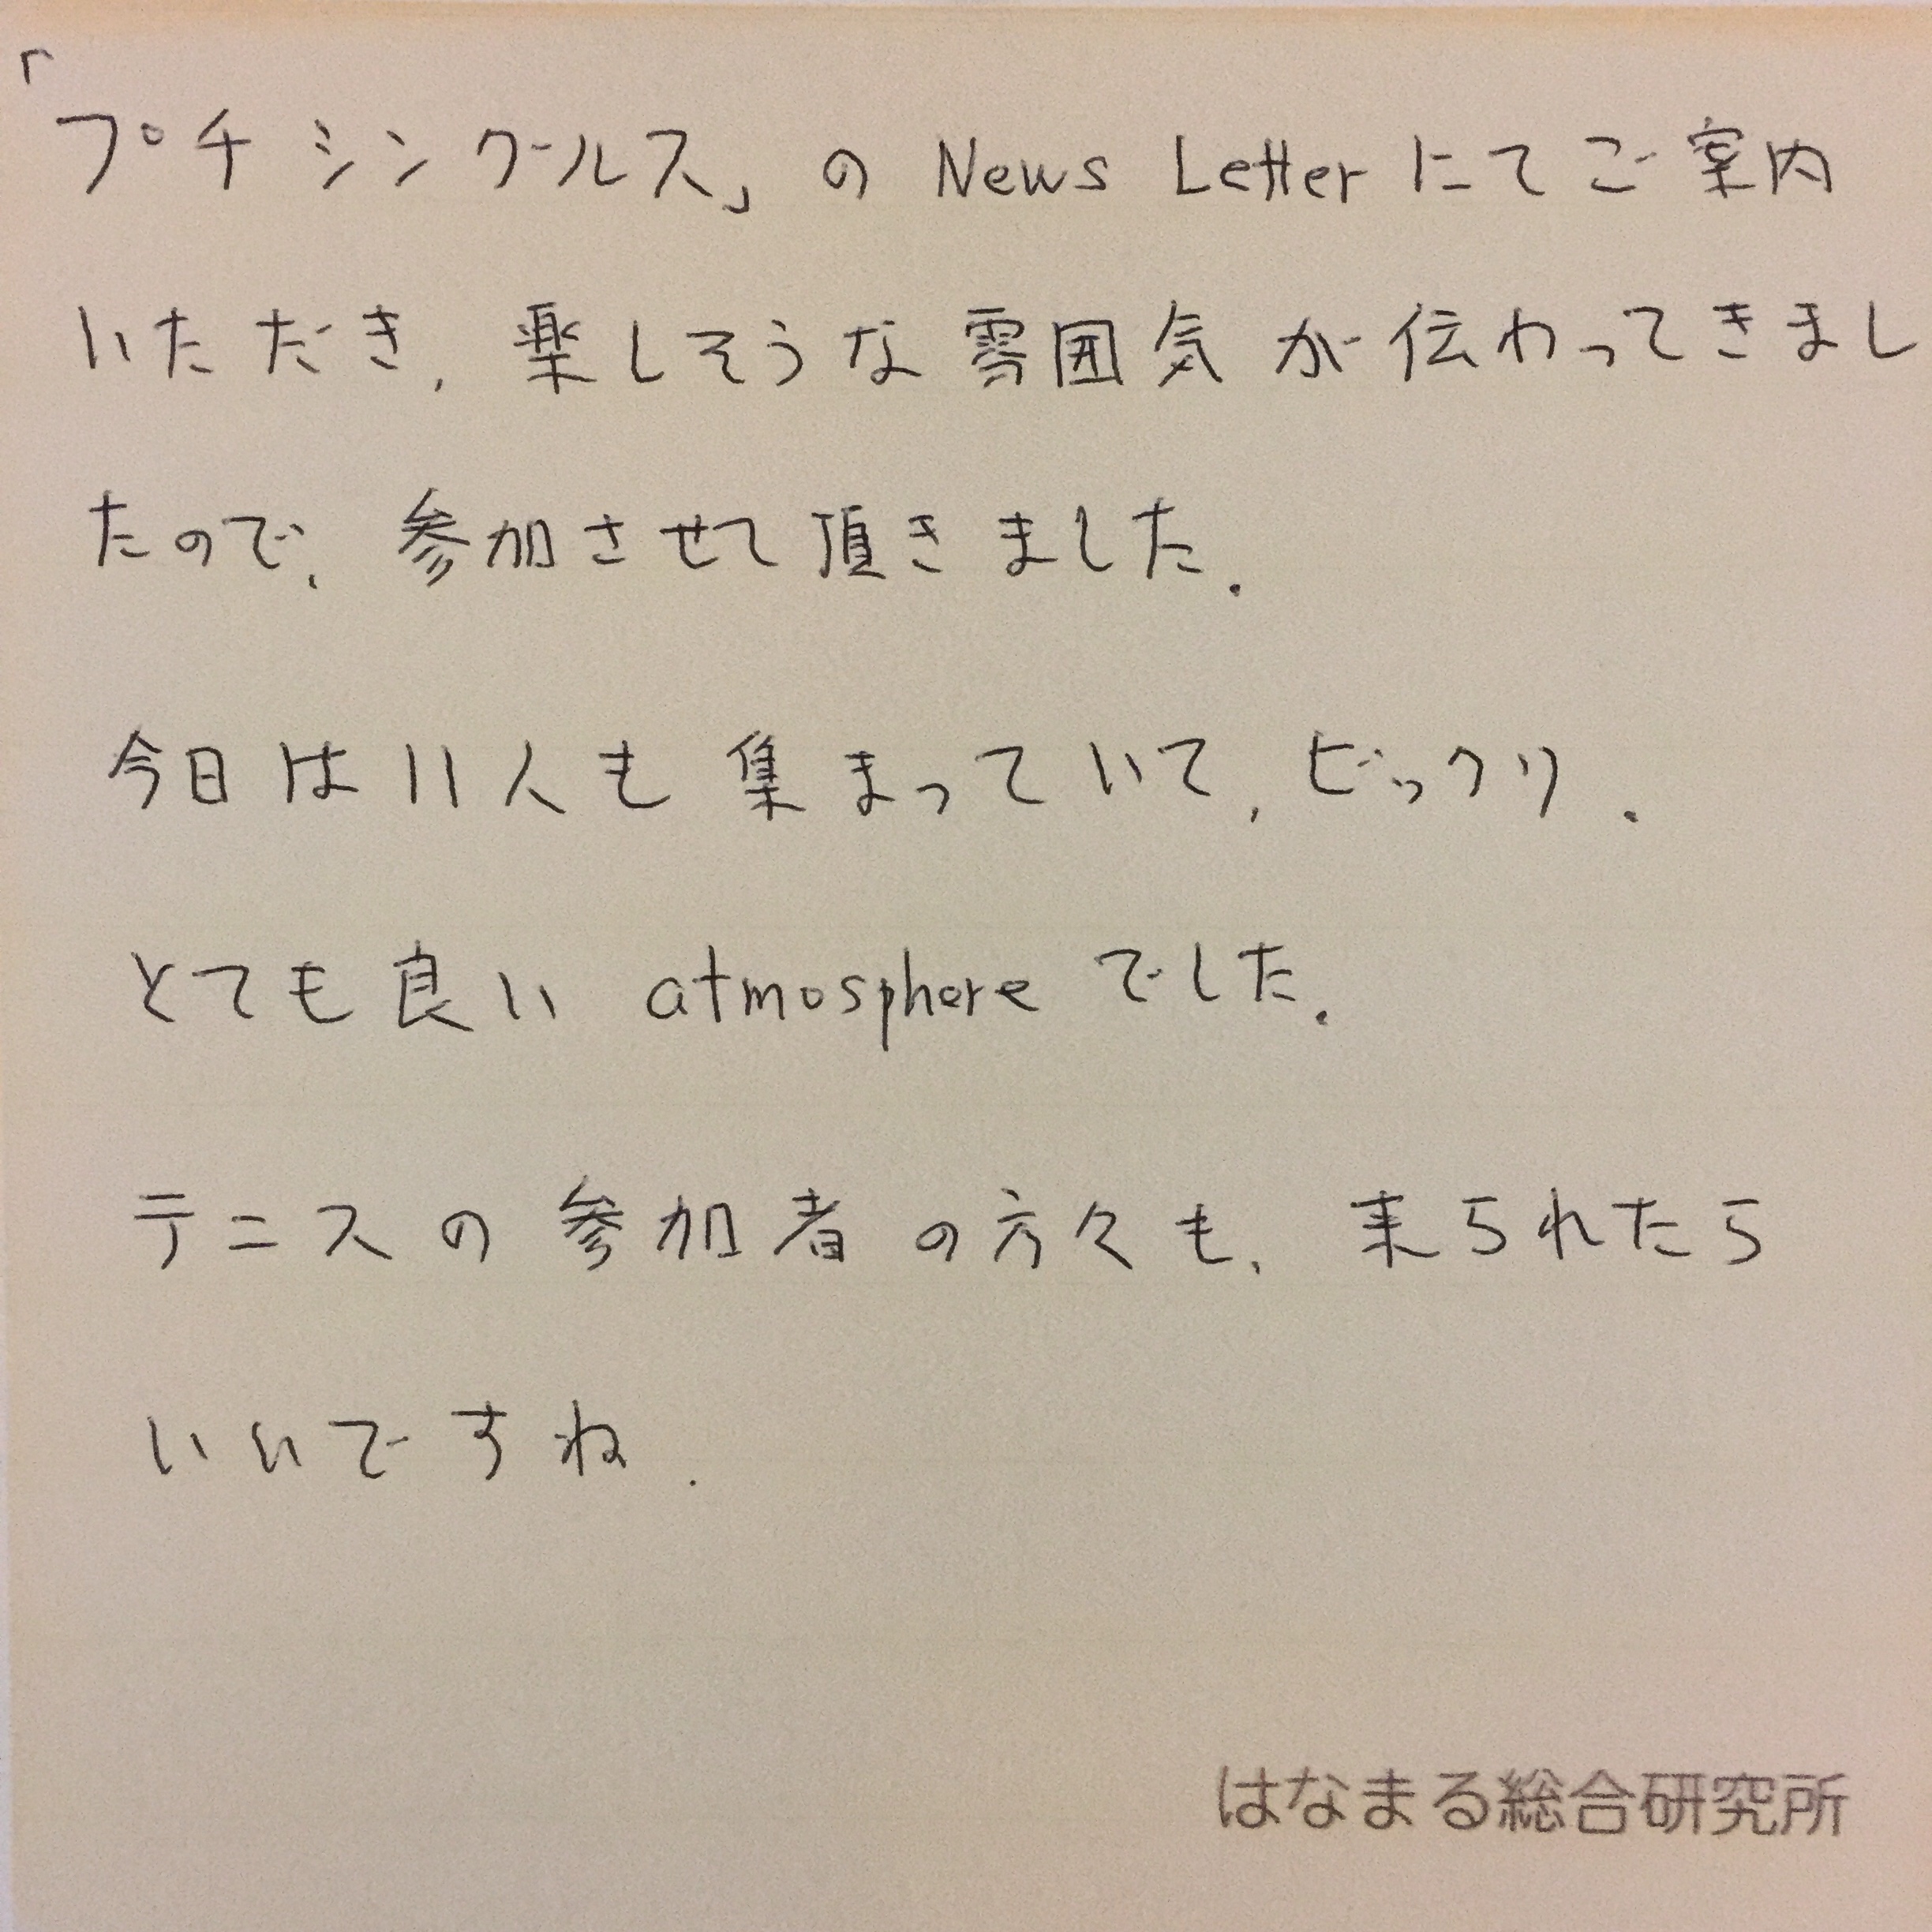 「プチシンクールス」の News Letter にてご案内
いただき、楽しそうな雰囲気が伝わってきまし
たので、参加させて頂きました.
今日は11人も集まっていて、ビックリ.
とても良い atmosphere でした.
テニスの参加者の方々も、来られたら
いいですね.
はなまる総合研究所